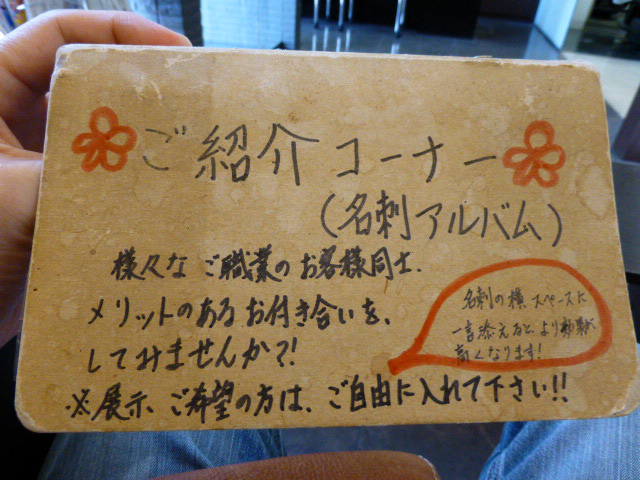 ご紹介コーナー
(名刺アルバム)
様々なご職業のお客様同士、
メリットのあるお付き合いを、
してみませんか?!
※展示、ご希望の方は、ご自由に入れて下さい!!
名刺の横スペースに
一言添えると、より効果が
高くなります!